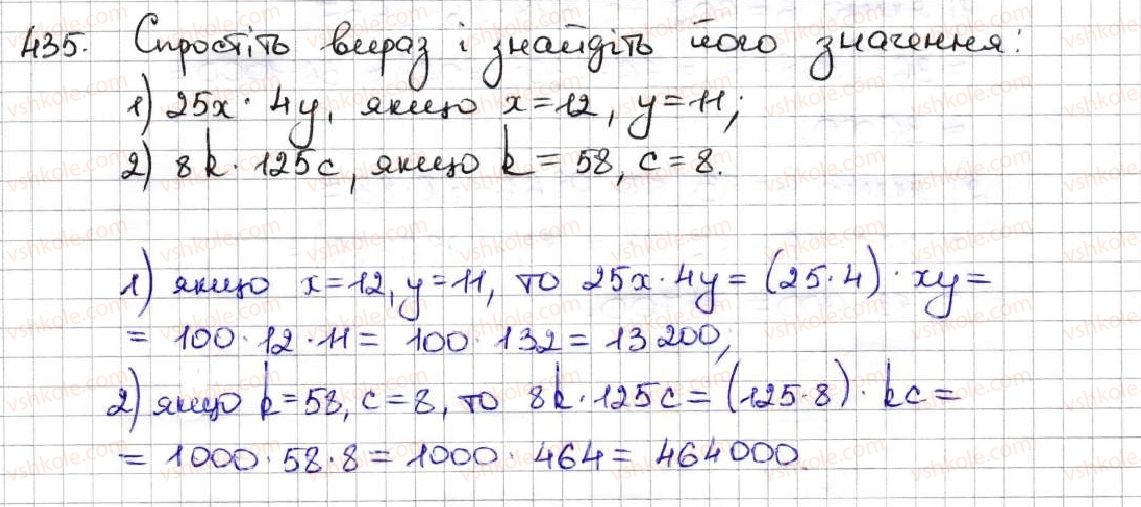 435. Спростіть вираз і знайдіть його значення:
1) 25x · 4y, якщо x = 12, y = 11;
2) 8k · 125c, якщо k = 58, c = 8.
1) якщо x = 12, y = 11, то 25x · 4y = (25 · 4) · xy =
= 100 · 12 · 11 = 100 · 132 = 13 200;
2) якщо k = 58, c = 8, то 8k · 125c = (125 · 8) · kc =
= 1000 · 58 · 8 = 1000 · 464 = 464 000.